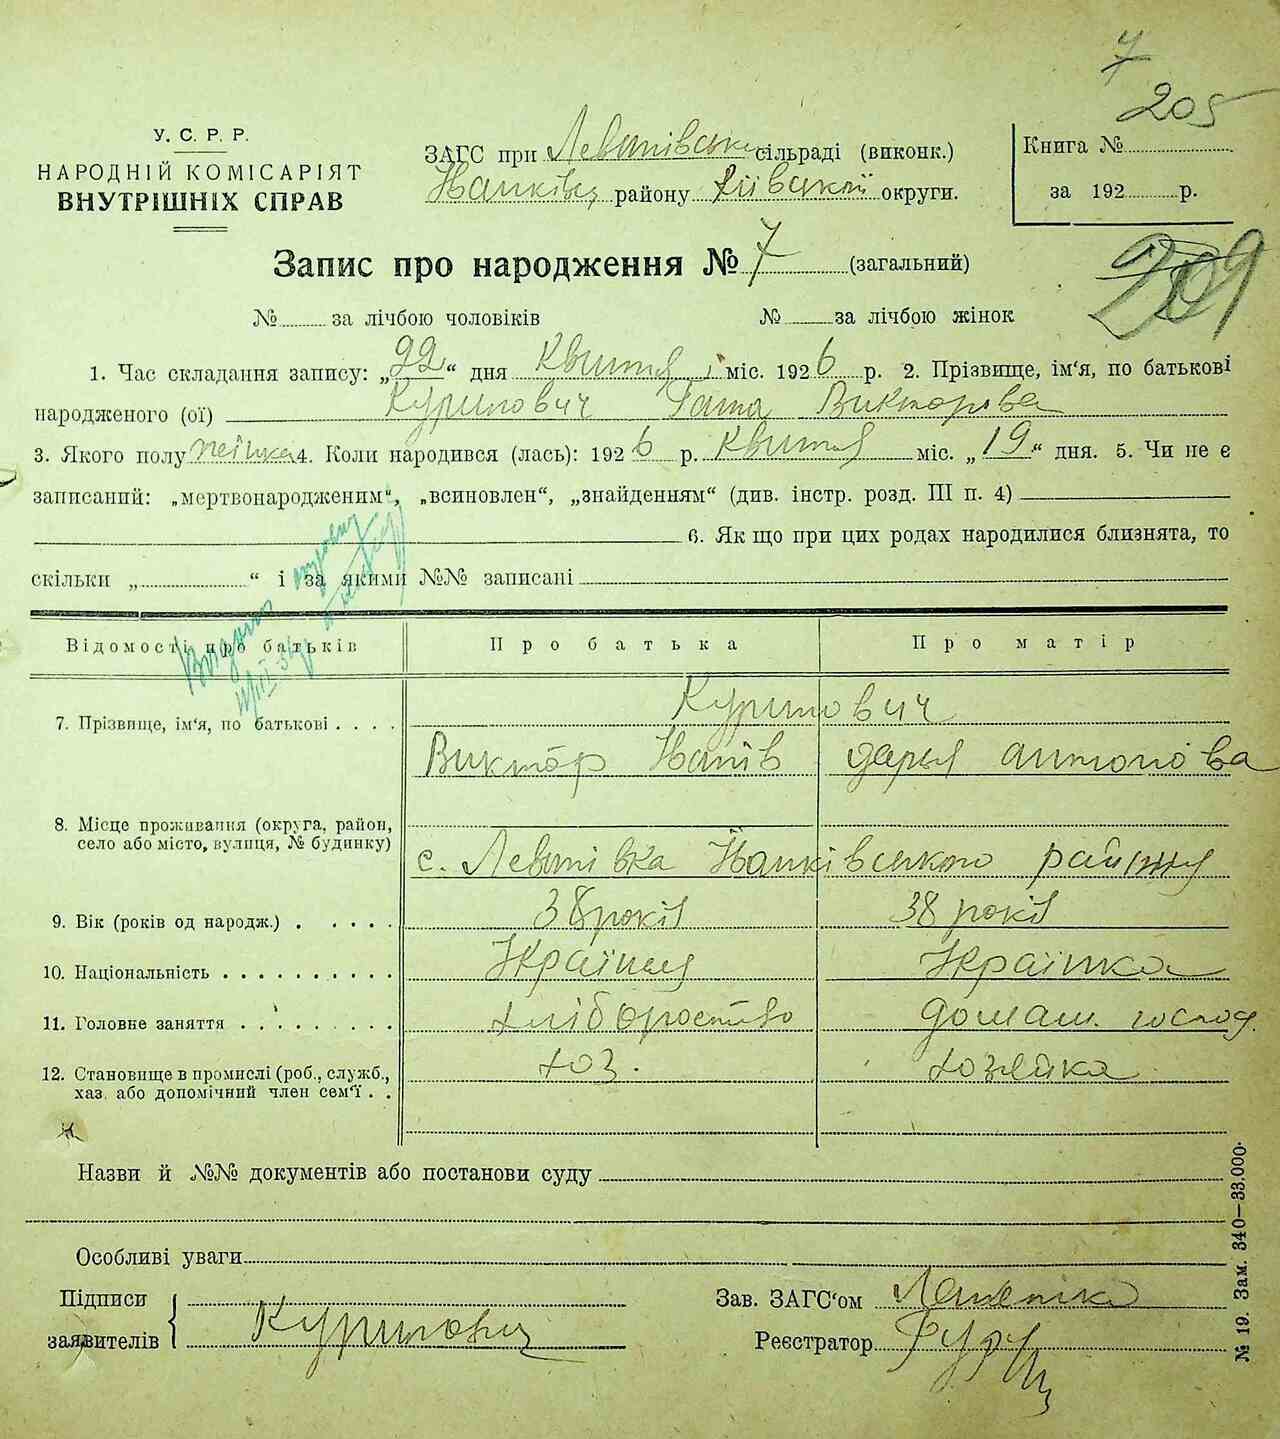 7
205
У. С. Р. Р.
НАРОДНІЙ КОМІСАРІЯТ
ВНУТРІШНІХ СПРАВ
ЗАГС при сільраді (виконк.)
району округи.
Книга №
за 192 р.
Запис про народження № 7 (загальний)
209
№ за лічбою чоловіків № за лічбою жінок
1. Час складання запису: „22“ дня Квитня міс. 1926 р. 2. Прізвище, ім'я, по батькові
народженого (ої) Курилович Викторова
3. Якого полу 4. Коли народився (лась): 1926 р. Квитня міс. „19“ дня. 5. Чи не є
записаний: „мертвонародженим“, „всиновлен“, „знайденням“ (див. інстр. розд. III п. 4)
6. Як що при цих родах народилися близнята, то
скільки „ “ і за якими №№ записані
Відомості про батьків Про батька Про матір
7. Прізвище, ім'я, по батькові Курилович
Виктор Дарья Антонова
8. Місце проживання (округа, район,
село або місто, вулиця, № будинку) с. району
9. Вік (років од народж.) 38 років 38 років
10. Національність Українец Українка
11. Головне заняття хліборобство домаш. господ.
12. Становище в промислі (роб., служб.,
хаз. або допомічний член сем'ї хоз. хозяйка
Назви й №№ документів або постанови суду
Особливі уваги
Підписи
заявителів Курилович
Зав. ЗАГС'ом
Реєстратор
№ 19. Зам. 340—33.000.